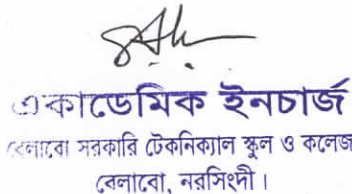 একাডেমিক ইনচার্জ
বেলাবো সরকারি টেকনিক্যাল স্কুল ও কলেজ
বেলাবো, নরসিংদী।